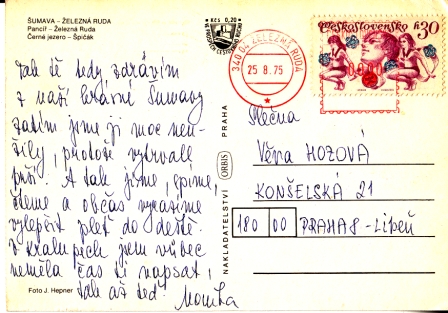 ŠUMAVA – ŽELEZNÁ RUDA
Pancíř – Železná Ruda
Černé jezero – Špičák
Kčs 0,20
340 04 ŽELEZNÁ RUDA
25 8. 75
Československo
h30
Tak tě tedy zdravím
z naší krásné Šumavy
zatím jsme ji moc neu-
žily, protože vytrvale
prší. A tak jíme, spíme,
čteme a občas vyrazíme
vylepšit pleť do deště.
V kralupech jsem vůbec
neměla čas ti napsat,
tak až teď. Monika
Slečna
Věra HOZOVÁ
KONŠELSKÁ 21
180 00 PRAHA 8 - Libeň
NAKLADATELSTVÍ ORBIS PRAHA
Foto J. Hepner